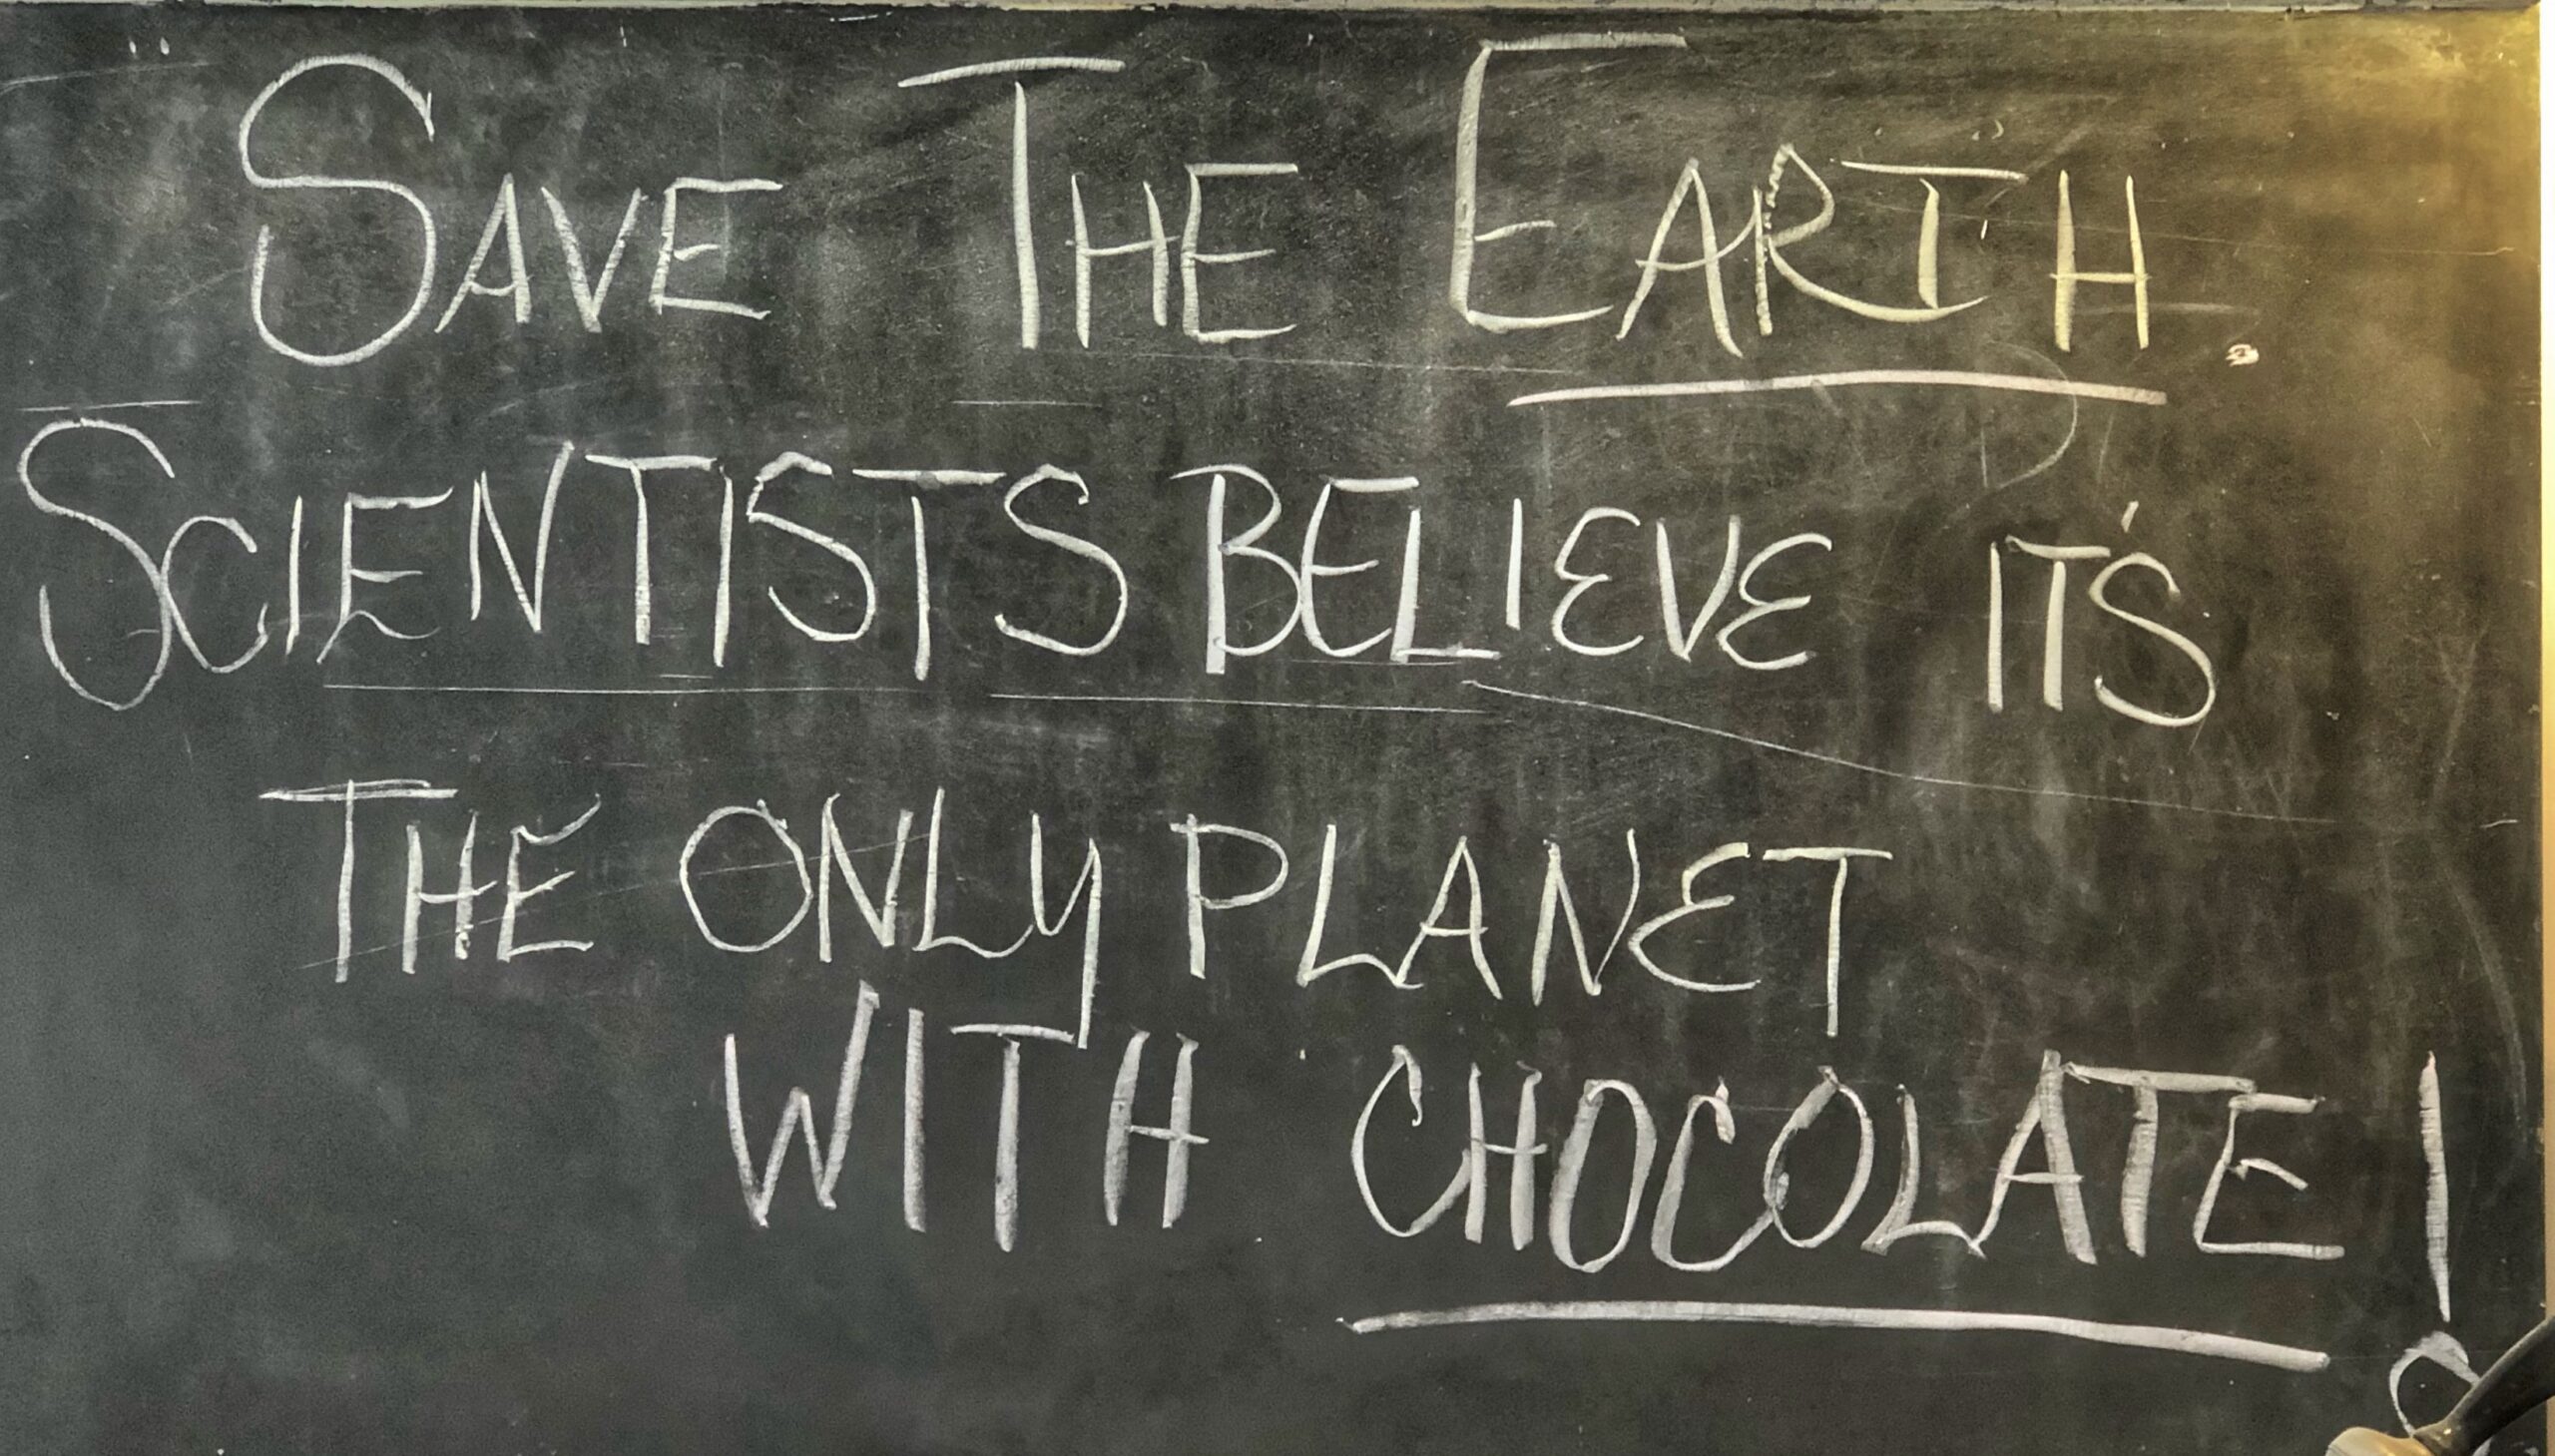 SAVE THE EARTH.
SCIENTISTS BELIEVE IT'S
THE ONLY PLANET
WITH CHOCOLATE!